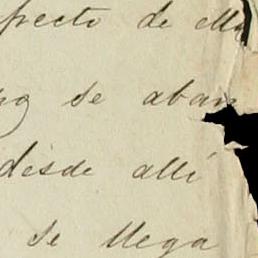 pecto de
se aban
desde allí
se llega